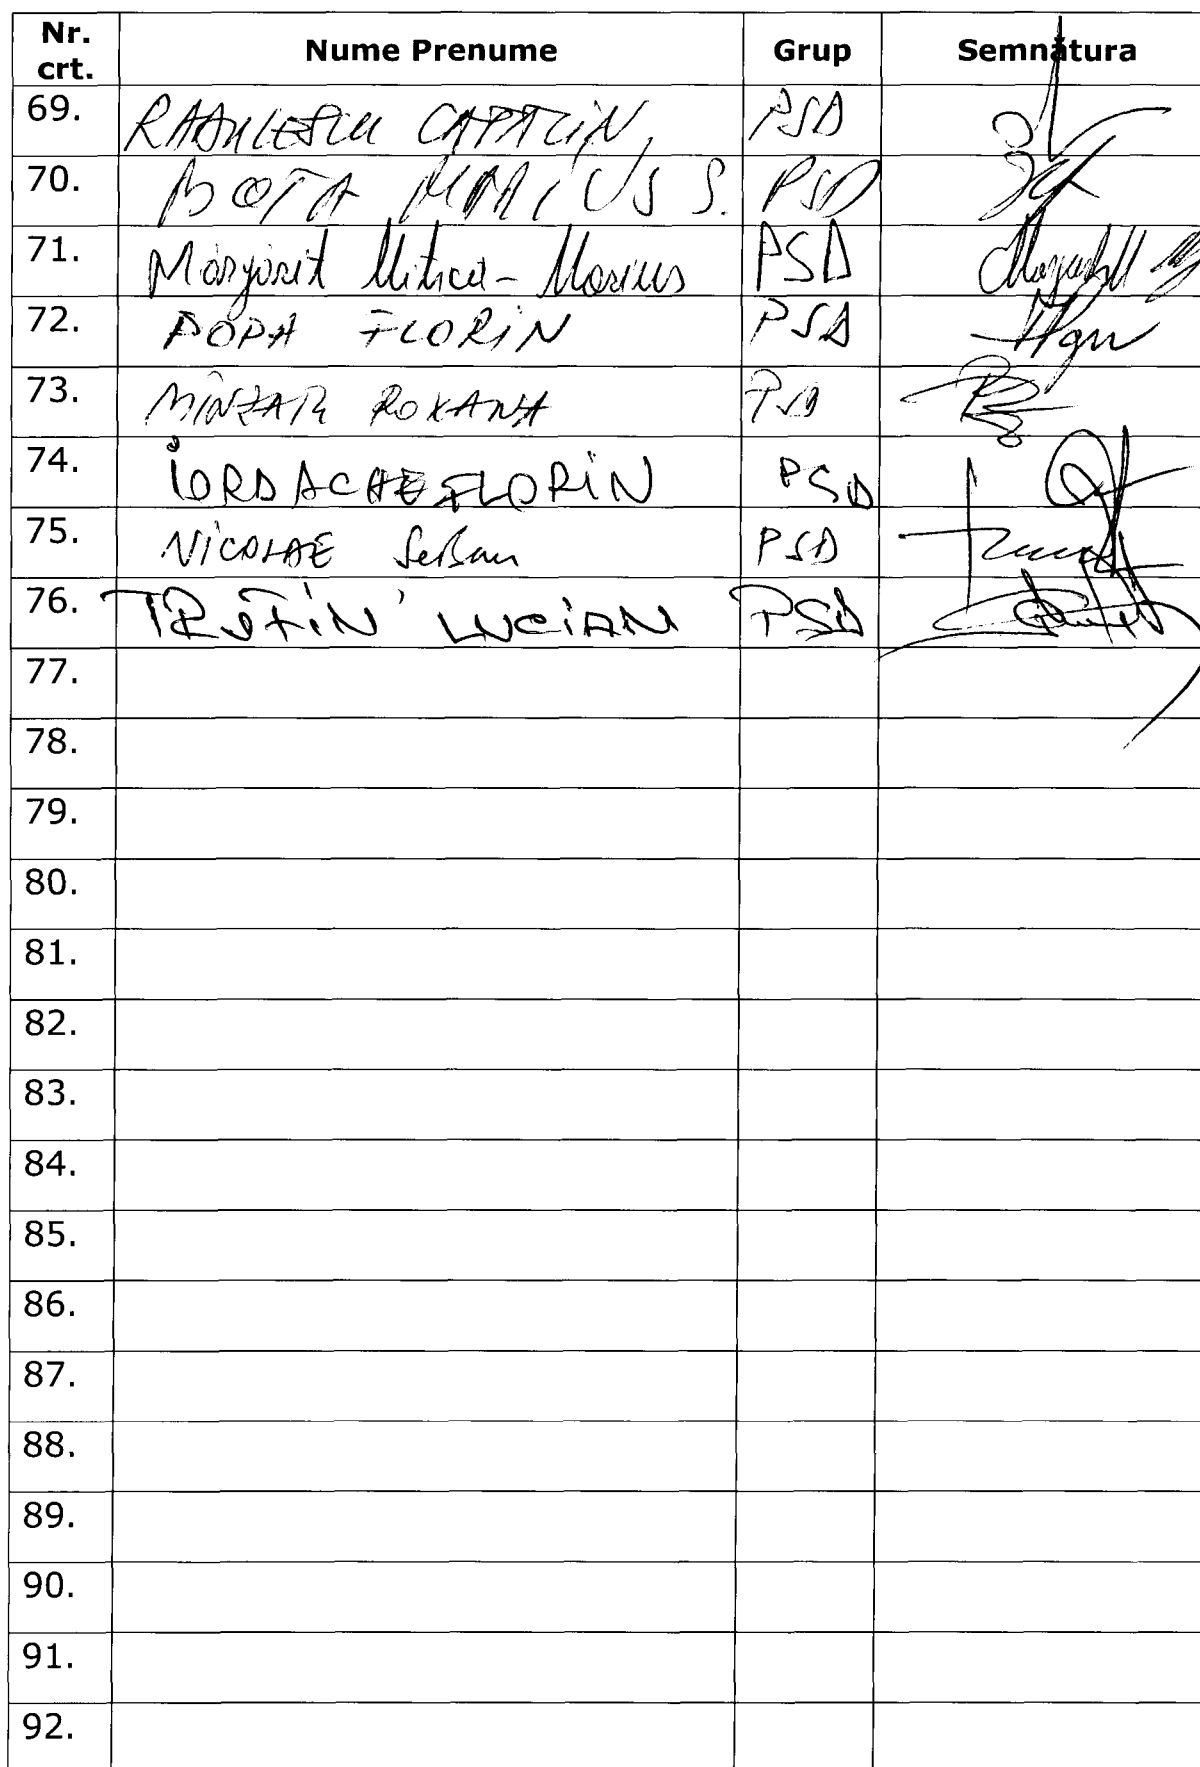 Nr. crt. Nume Prenume Grup Semnătura
69. RADULESCU CATALIN, PSD
70. BOTA MARIUS S. PSD
71. Mărgărit Mitica-Marius PSD
72. POPA FLORIN PSD
73. MÎNZATU ROXANA PSD
74. IORDACHE FLORIN PSD
75. NICOLAE Serban PSD
76. TRUFIN LUCIAN PSD
77.
78.
79.
80.
81.
82.
83.
84.
85.
86.
87.
88.
89.
90.
91.
92.